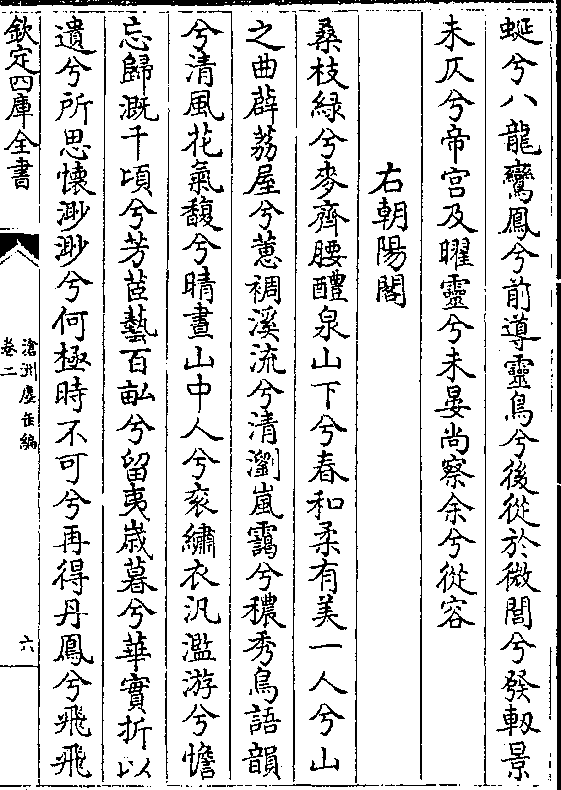 蜒兮八龍鸞鳳兮前導靈鳥兮後從於微閭兮發軔景
未仄兮帝宮及曜靈兮未晏尚察余兮從容
右朝陽閣
桑枝綠兮麥齊腰醴泉山下兮春和柔有美一人兮山
之曲薜荔屋兮蕙裯溪流兮清瀏嵐靄兮穠秀鳥語韻
兮清風花氣馥兮晴晝山中人兮衮繡衣汎濫游兮憺
忘歸溉千頃兮芳茝藝百畝兮留夷歲暮兮華實折以
遺兮所思懷渺渺兮何極時不可兮再得丹鳳兮飛飛
欽定四庫全書
滄洲塵缶編
卷二
六